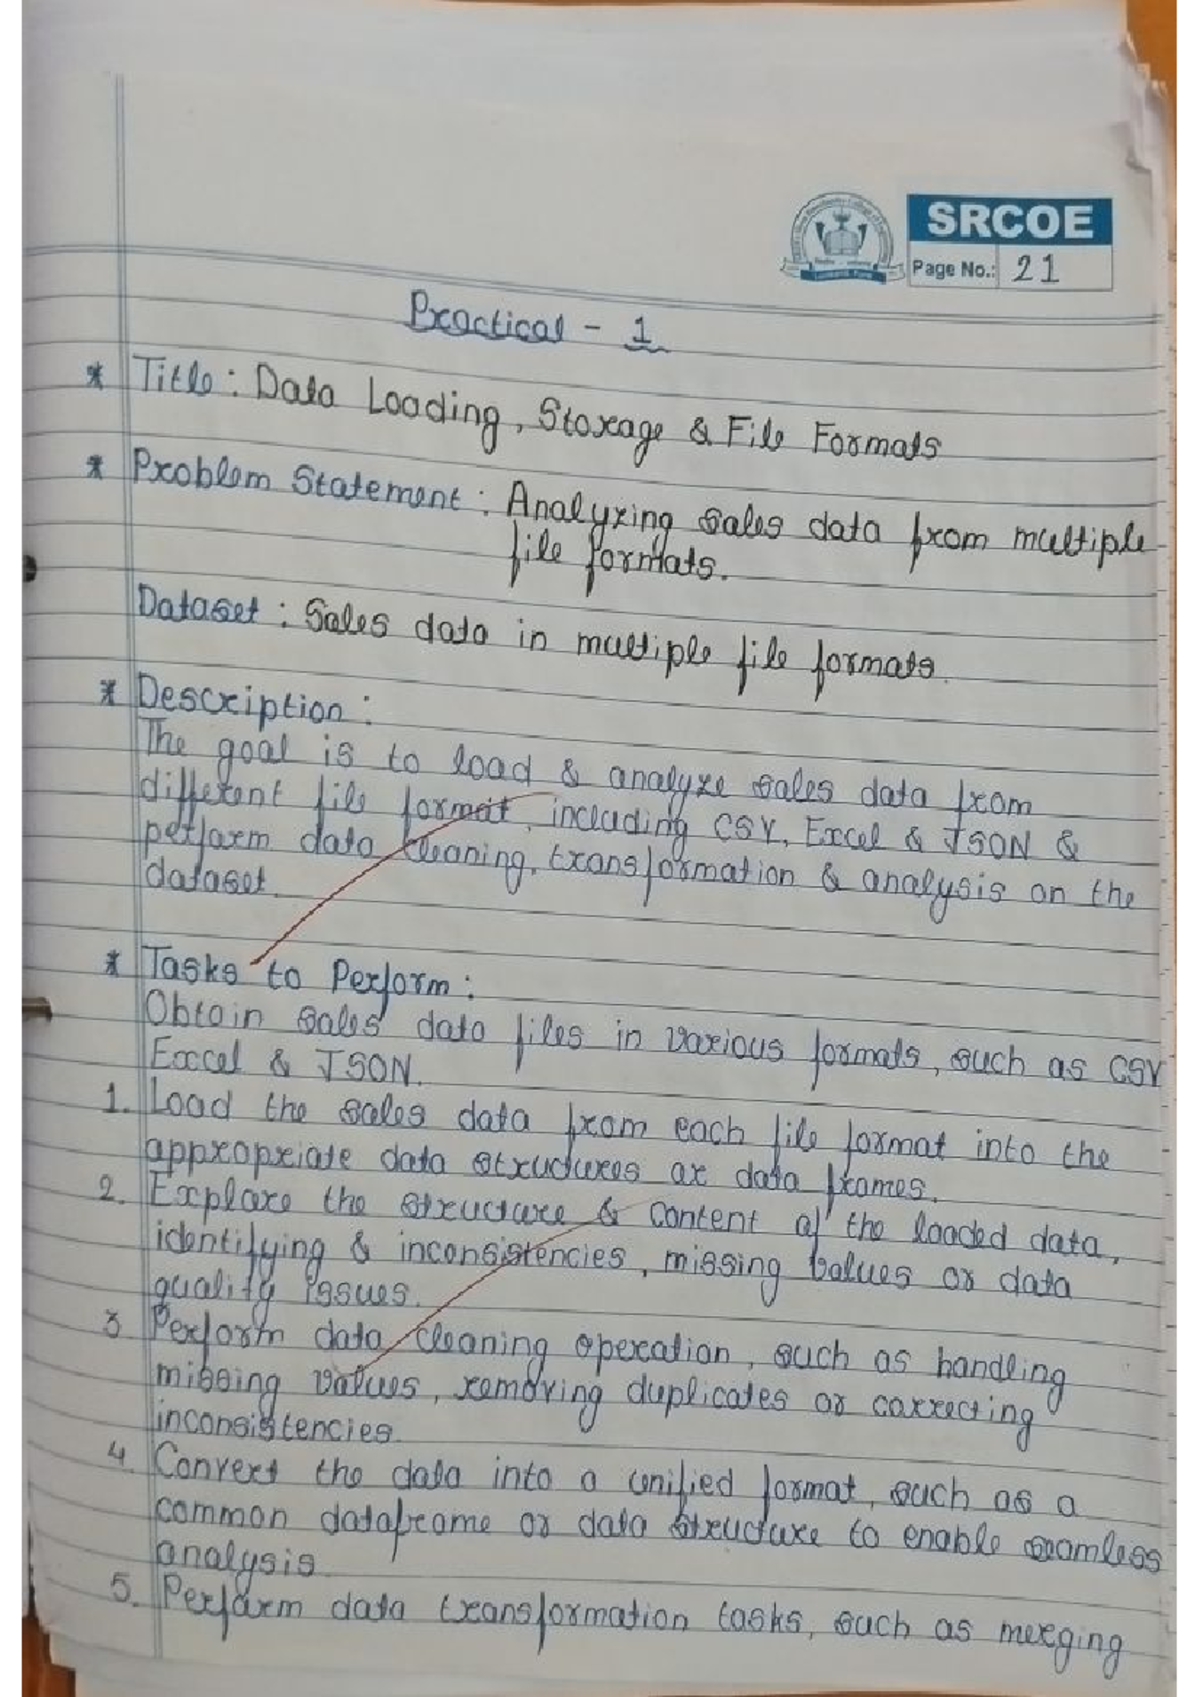 SRCOE
Page No.: 21
Practical - 1
* Title : Data Loading, Storage & File Formats
* Problem Statement : Analyzing sales data from multiple
file formats.
Dataset : Sales data in multiple file formats.
* Description :
The goal is to load & analyze sales data from
different file format, including CSV, Excel & JSON &
perform data cleaning, transformation & analysis on the
dataset.
* Tasks to Perform :
Obtain sales data files in various formats, such as CSV
Excel & JSON.
1. Load the sales data from each file format into the
appropriate data structures or data frames.
2. Explore the structure & content of the loaded data,
identifying & inconsistencies, missing values or data
quality issues.
3 Perform data cleaning operation, such as handling
missing values, removing duplicates or correcting
inconsistencies.
4 Convert the data into a unified format, such as a
common dataframe or data structure to enable seamless
analysis
5. Perform data transformation tasks, such as merging